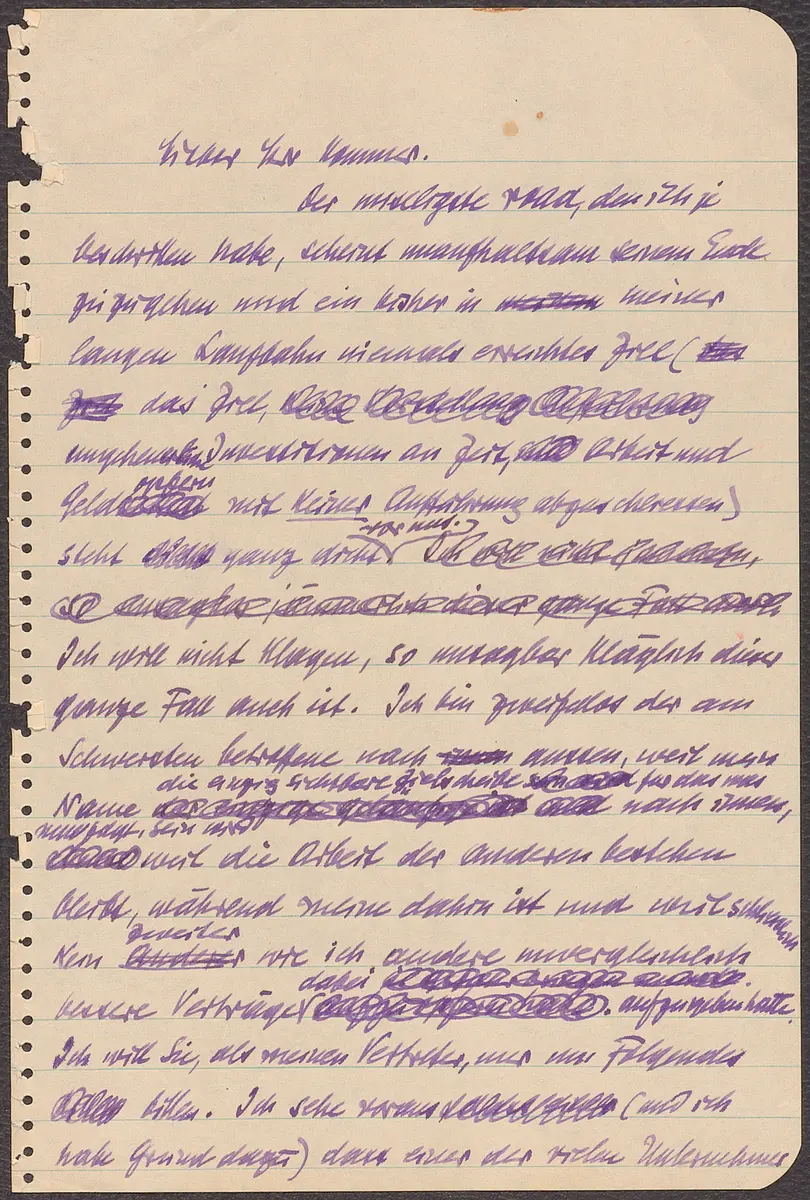 Lieber Herr Kommer.
Der unseligste road, den ich je
beschritten habe, scheint unaufhaltsam seinem Ende
zuzugehen und ein bisher in meiner
langen Laufbahn niemals erreichtes Ziel (
das Ziel,
ungeheure Investitionen an Zeit, Arbeit und
opfern
Geld mit keiner Aufführung abzuschliessen)
vor uns.
steht ganz dicht
Ich will nicht klagen, so unsagbar kläglich dieser
ganze Fall auch ist. Ich bin zweifellos der am
Schwersten betroffene nach aussen, weil mein
die einzig sichtbare Zielscheibe für das was
Name nach innen,
sein wird
weil die Arbeit der anderen bestehen
bleibt, während meine dahin ist und weil schliesslich
zweiter
kein wie ich andere unvergleichlich
dabei
bessere Verträge aufzugeben hatte.
Ich will Sie, als meinen Vertreter, nur um Folgendes
bitten. Ich sehe voraus (und ich
habe Grund dazu) dass einer der vielen Unternehmer